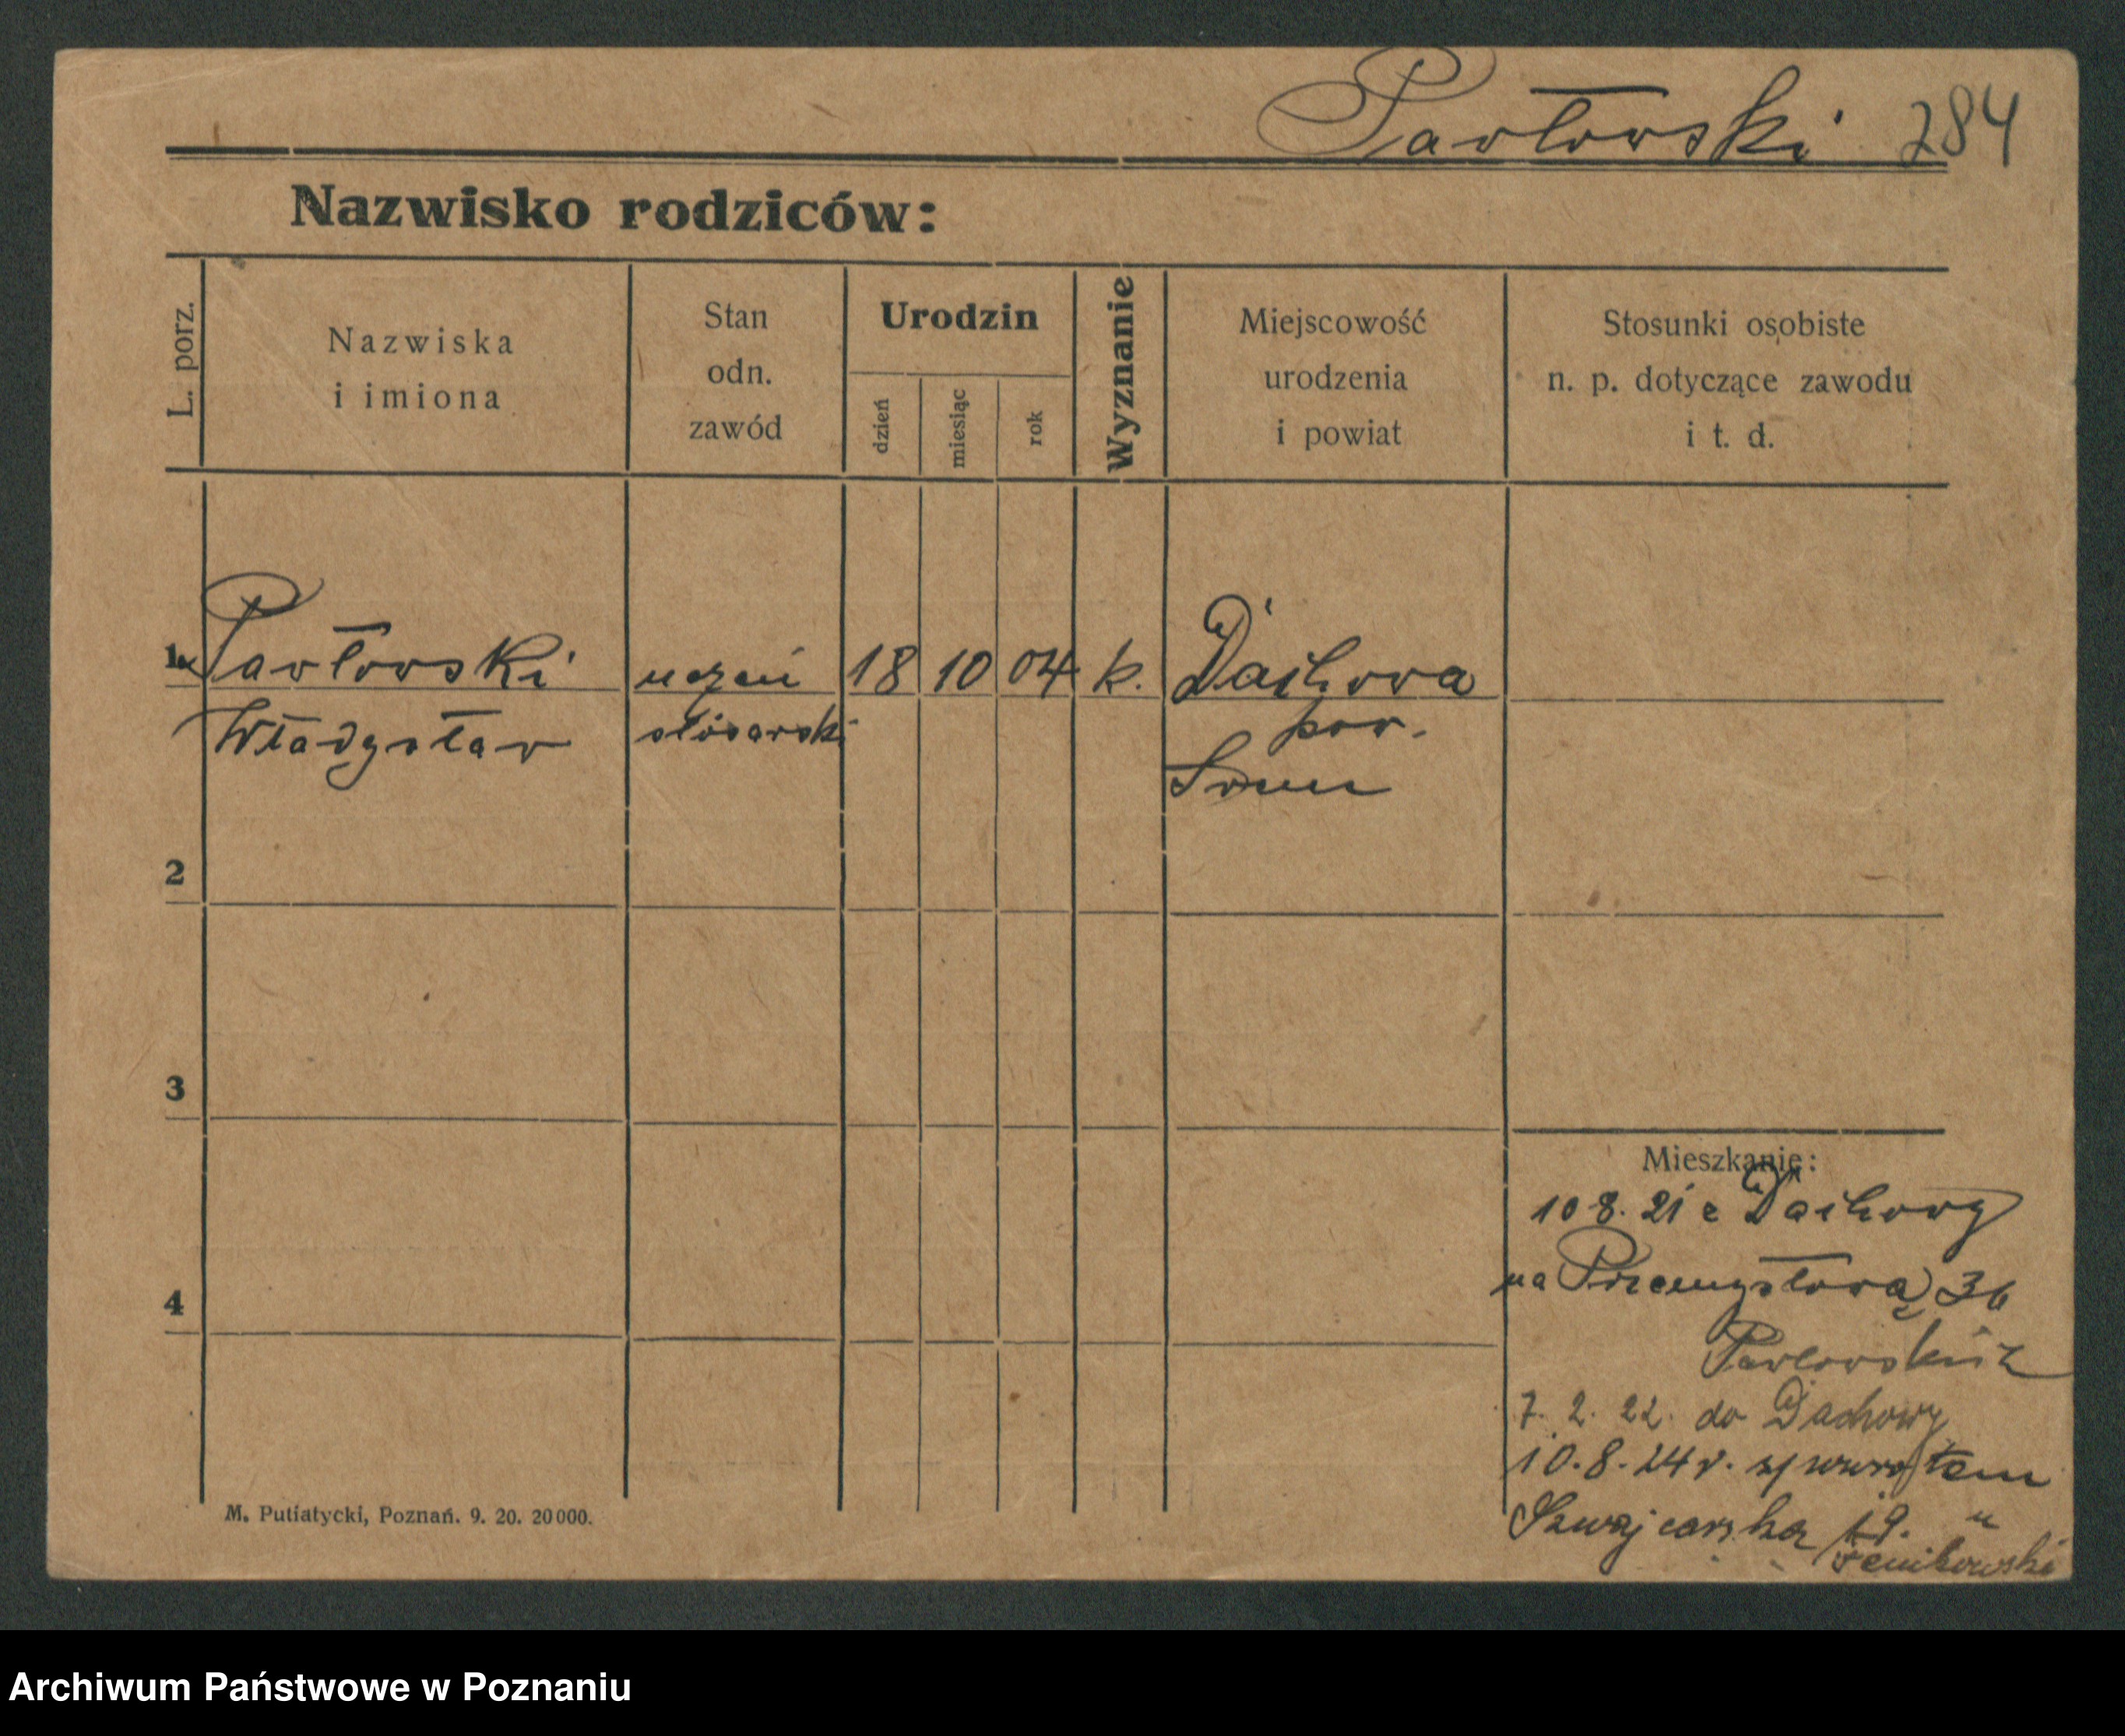 Pawłowski 284
Nazwisko rodziców:
L. porz.
Nazwiska
i imiona
Stan
odn.
zawód
Urodzin
dzień
miesiąc
rok
Wyznanie
Miejscowość
urodzenia
i powiat
Stosunki osobiste
n. p. dotyczące zawodu
i t. d.
1. Pawłowski uczeń 18 10 04 k. Dachowa
Władysław ślósarski pow.
Śrem
2
3
4
Mieszkanie:
10 8. 21 z Dachowy
na Przemysłową 36
Pawłowskich
7. 2. 22. do Dachowy
10.8.24 r. z powrotem
Szwajcarska 19. u
M. Putiatycki, Poznań. 9. 20. 20000.
Archiwum Państwowe w Poznaniu